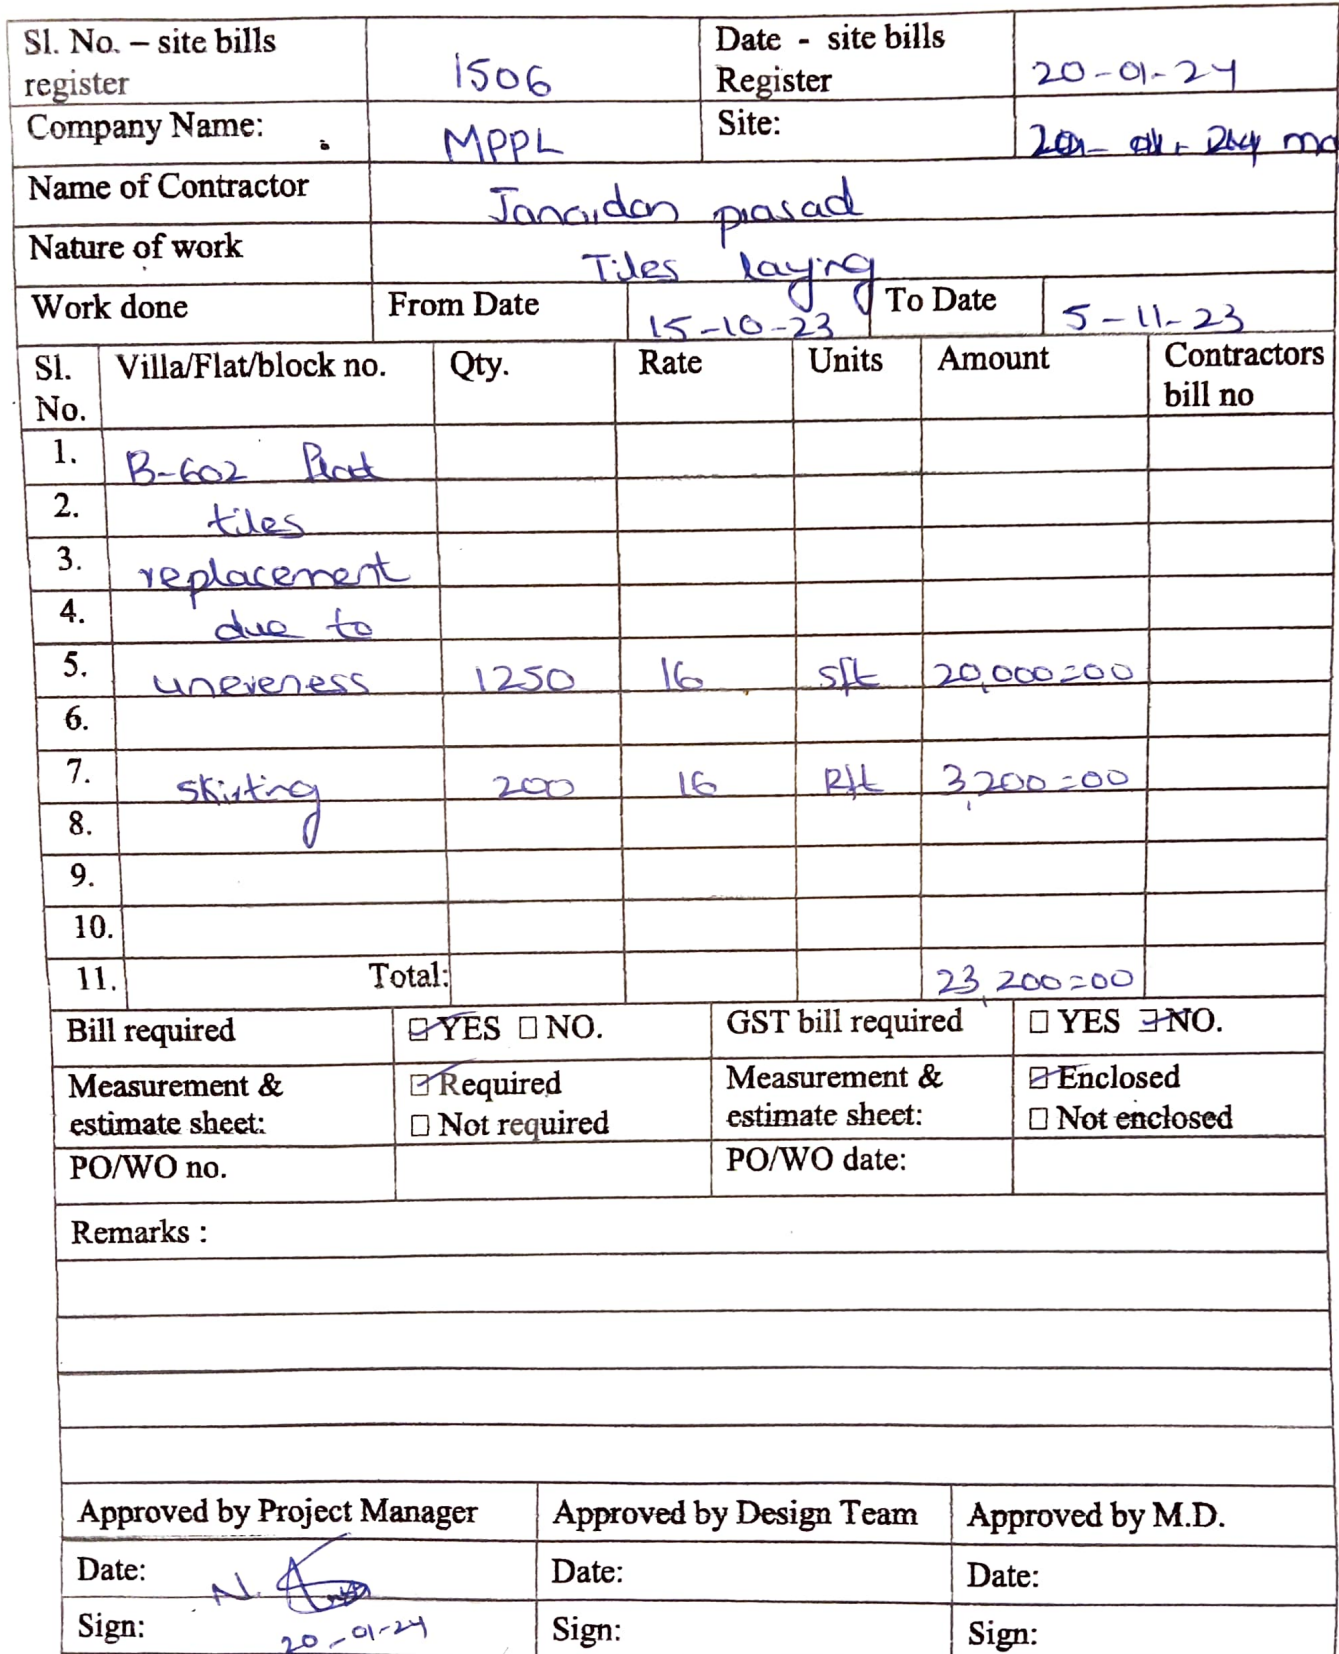 Sl. No. – site bills register 1506 Date - site bills Register 20-01-24
Company Name: MPPL Site:
Name of Contractor Janardan prasad
Nature of work Tiles laying
Work done From Date 15-10-23 To Date 5-11-23
Sl. No. Villa/Flat/block no. Qty. Rate Units Amount Contractors bill no
1. B-602 Flat
2. tiles
3. replacement
4. due to
5. uneveness 1250 16 sft 20,000=00
6.
7. skirting 200 16 Rft 3,200=00
8.
9.
10.
11. Total: 23,200=00
Bill required ☑ YES ☐ NO. GST bill required ☐ YES ☑ NO.
Measurement & estimate sheet: ☑ Required ☐ Not required Measurement & estimate sheet: ☑ Enclosed ☐ Not enclosed
PO/WO no. PO/WO date:
Remarks :
Approved by Project Manager Approved by Design Team Approved by M.D.
Date: Date: Date:
Sign: 20-01-24 Sign: Sign: